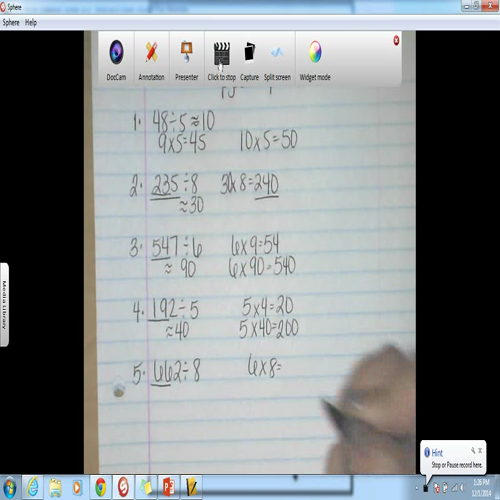 Sphere
Sphere Help
DocCam Annotation Presenter Click to stop Capture Split screen Widget mode
1. 48÷5≈10
9x5=45 10x5=50
2. 235÷8 30x8=240
≈30
3. 547÷6 6x9=54
≈ 90 6x90=540
4. 192÷5 5x4=20
≈40 5x40=200
5. 662÷8 6x8=
Media Library
Hint
Stop or Pause record here.
1:26 PM
12/1/2014